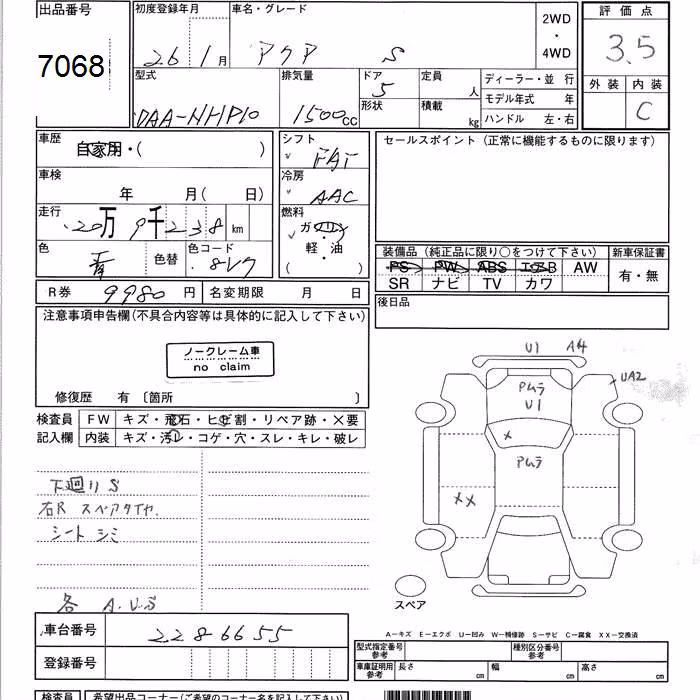 出品番号
7068
初度登録年月
26 1月
車名・グレード
アクア S
2WD
・
4WD
評価点
3.5
外装 内装
C
型式
DAA-NHP10
排気量
1500cc
ドア
5
形状
定員
人
積載
kg
ディーラー・並 行
モデル年式 年
ハンドル 左・右
車歴
自家用・( )
車検
年 月( 日)
走行
20万9千238km
色
青
色替
色コード
8V7
シフト
FAT
冷房
AAC
燃料
ガソリン
・
軽・油
( )
セールスポイント (正常に機能するものに限ります)
装備品 (純正品に限り○をつけて下さい)
PS PW ABS エアB AW
SR ナビ TV カワ
新車保証書
有・無
R券 9980円
名変期限 月 日
後日品
注意事項申告欄(不具合内容等は具体的に記入して下さい)
ノークレーム車
no claim
修復歴 有 〔箇所 〕
検査員
記入欄
FW キズ・飛石・ヒビ割・リペア跡・X要
内装 キズ・汚レ・コゲ・穴・スレ・キレ・破レ
下廻りS
右R スペアタイヤ.
シート シミ
各 A.U.S
U1 A4
UA2
Pムラ
U1
X
Pムラ
XX
スペア
A－キズ E－エクボ U－凹み W－補修跡 S－サビ C－腐食 XX－交換済
車台番号 2286655
登録番号
型式指定番号
参考
種別区分番号
参考
車庫証明用
参考
長さ cm
幅 cm
高さ cm
検査員
希望出品コーナー(ご希望のコーナー名を記入して下さい)